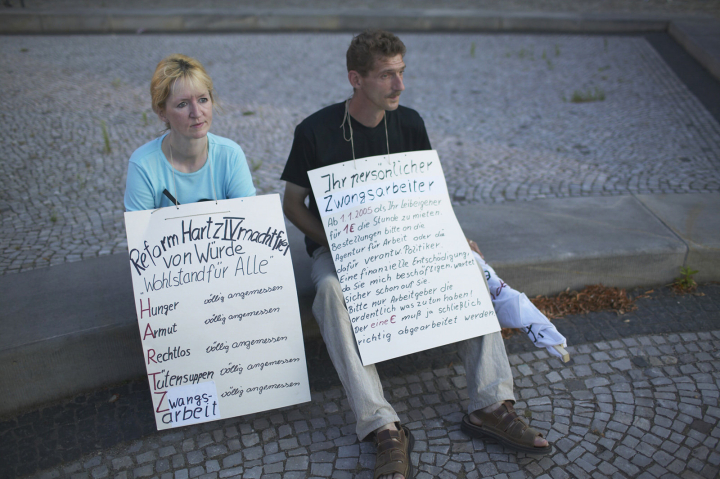 Reform Hartz IV macht frei
von Würde
"Wohlstand für Alle"
Hunger völlig angemessen
Armut völlig angemessen
Rechtlos völlig angemessen
Tütensuppen völlig angemessen
Zwangs- völlig angemessen
arbeit
Ihr persönlicher
Zwangsarbeiter
Ab 1.1.2005 als Ihr Leibeigener
für 1€ die Stunde zu mieten.
Bestellungen bitte an die
Agentur für Arbeit oder die
dafür verantw. Politiker.
Eine finanzielle Entschädigung,
da Sie mich beschäftigen, wartet
sicher schon auf Sie.
Bitte nur Arbeitgeber die
ordentlich was zu tun haben!
Der eine € muß ja schließlich
richtig abgearbeitet werden.